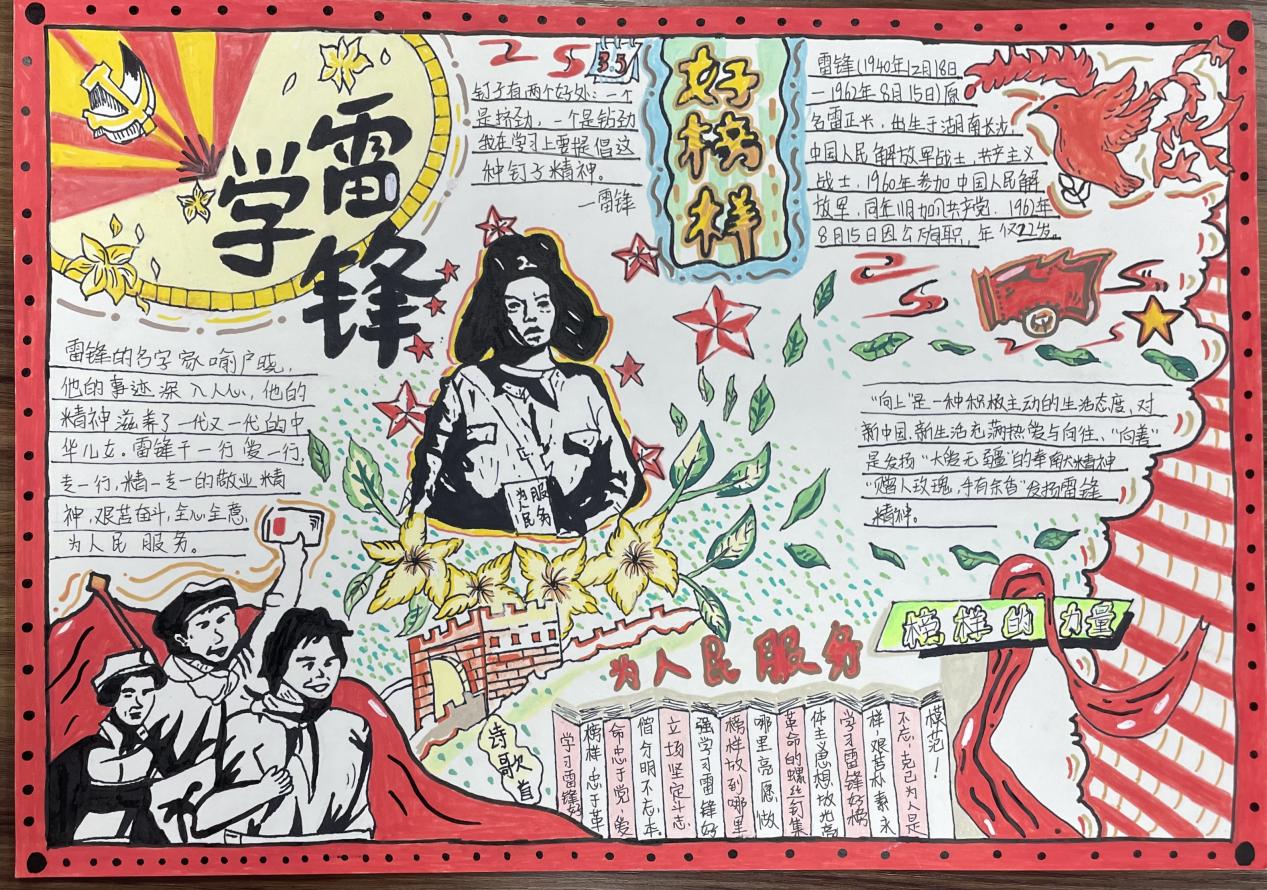 学
雷
锋
3.5
钉子有两个好处：一个
是挤劲，一个是钻劲
我在学习上要提倡这
种钉子精神。
—雷锋
好
榜
样
雷锋(1940年12月18日
—1962年8月15日)原
名雷正兴，出生于湖南长沙，
中国人民解放军战士，共产主义
战士，1960年参加中国人民解
放军，同年11月加入共产党，1962年
8月15日因公殉职，年仅22岁。
雷锋的名字家喻户晓，
他的事迹深入人心，他的
精神滋养了一代又一代的中
华儿女。雷锋干一行爱一行，
专一行，精一专一的敬业精
神，艰苦奋斗，全心全意
为人民服务。
为人民
服务
“向上”是一种积极主动的生活态度，对
新中国、新生活充满热爱与向往、“向善”
是发扬“大爱无疆”的奉献精神
“赠人玫瑰，手有余香”发扬雷锋
精神。
榜样的力量
为人民服务
诗歌一首
学习雷锋好
榜样，忠于革
命忠于党，爱
憎分明不忘本，
立场坚定斗志
强学习雷锋好
榜样放到哪里
哪里亮，愿做
革命的螺丝钉集
体主义思想放光芒
学习雷锋好榜
样，艰苦朴素永
不忘，克己为人是
模范！